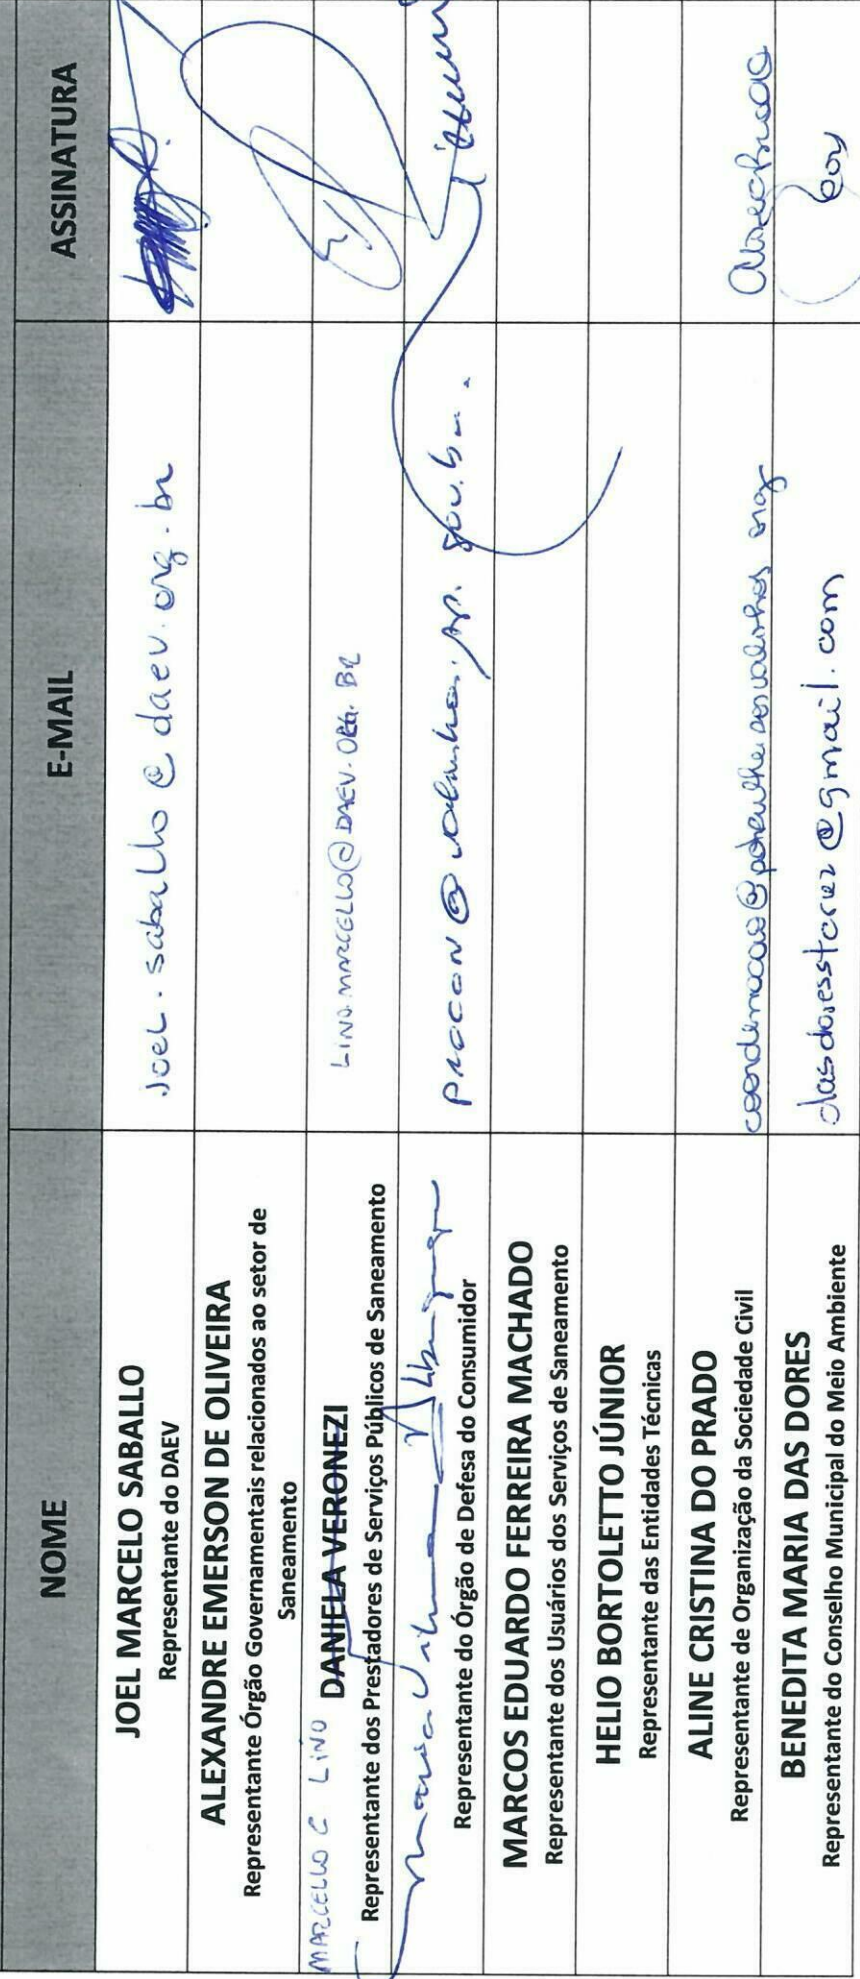 NOME E-MAIL ASSINATURA
JOEL MARCELO SABALLO
Representante do DAEV
joel.saballo@daev.org.br
ALEXANDRE EMERSON DE OLIVEIRA
Representante Órgão Governamentais relacionados ao setor de
Saneamento
MARCELLO C LINO DANIELA VERONEZI
Representante dos Prestadores de Serviços Públicos de Saneamento
LINO.MARCELLO@DAEV.ORG.BR
Maria
Representante do Órgão de Defesa do Consumidor
procon@valinhos.sp.gov.br.
MARCOS EDUARDO FERREIRA MACHADO
Representante dos Usuários dos Serviços de Saneamento
HELIO BORTOLETTO JÚNIOR
Representante das Entidades Técnicas
ALINE CRISTINA DO PRADO
Representante de Organização da Sociedade Civil
BENEDITA MARIA DAS DORES
Representante do Conselho Municipal do Meio Ambiente
dasdoresstcruz@gmail.com